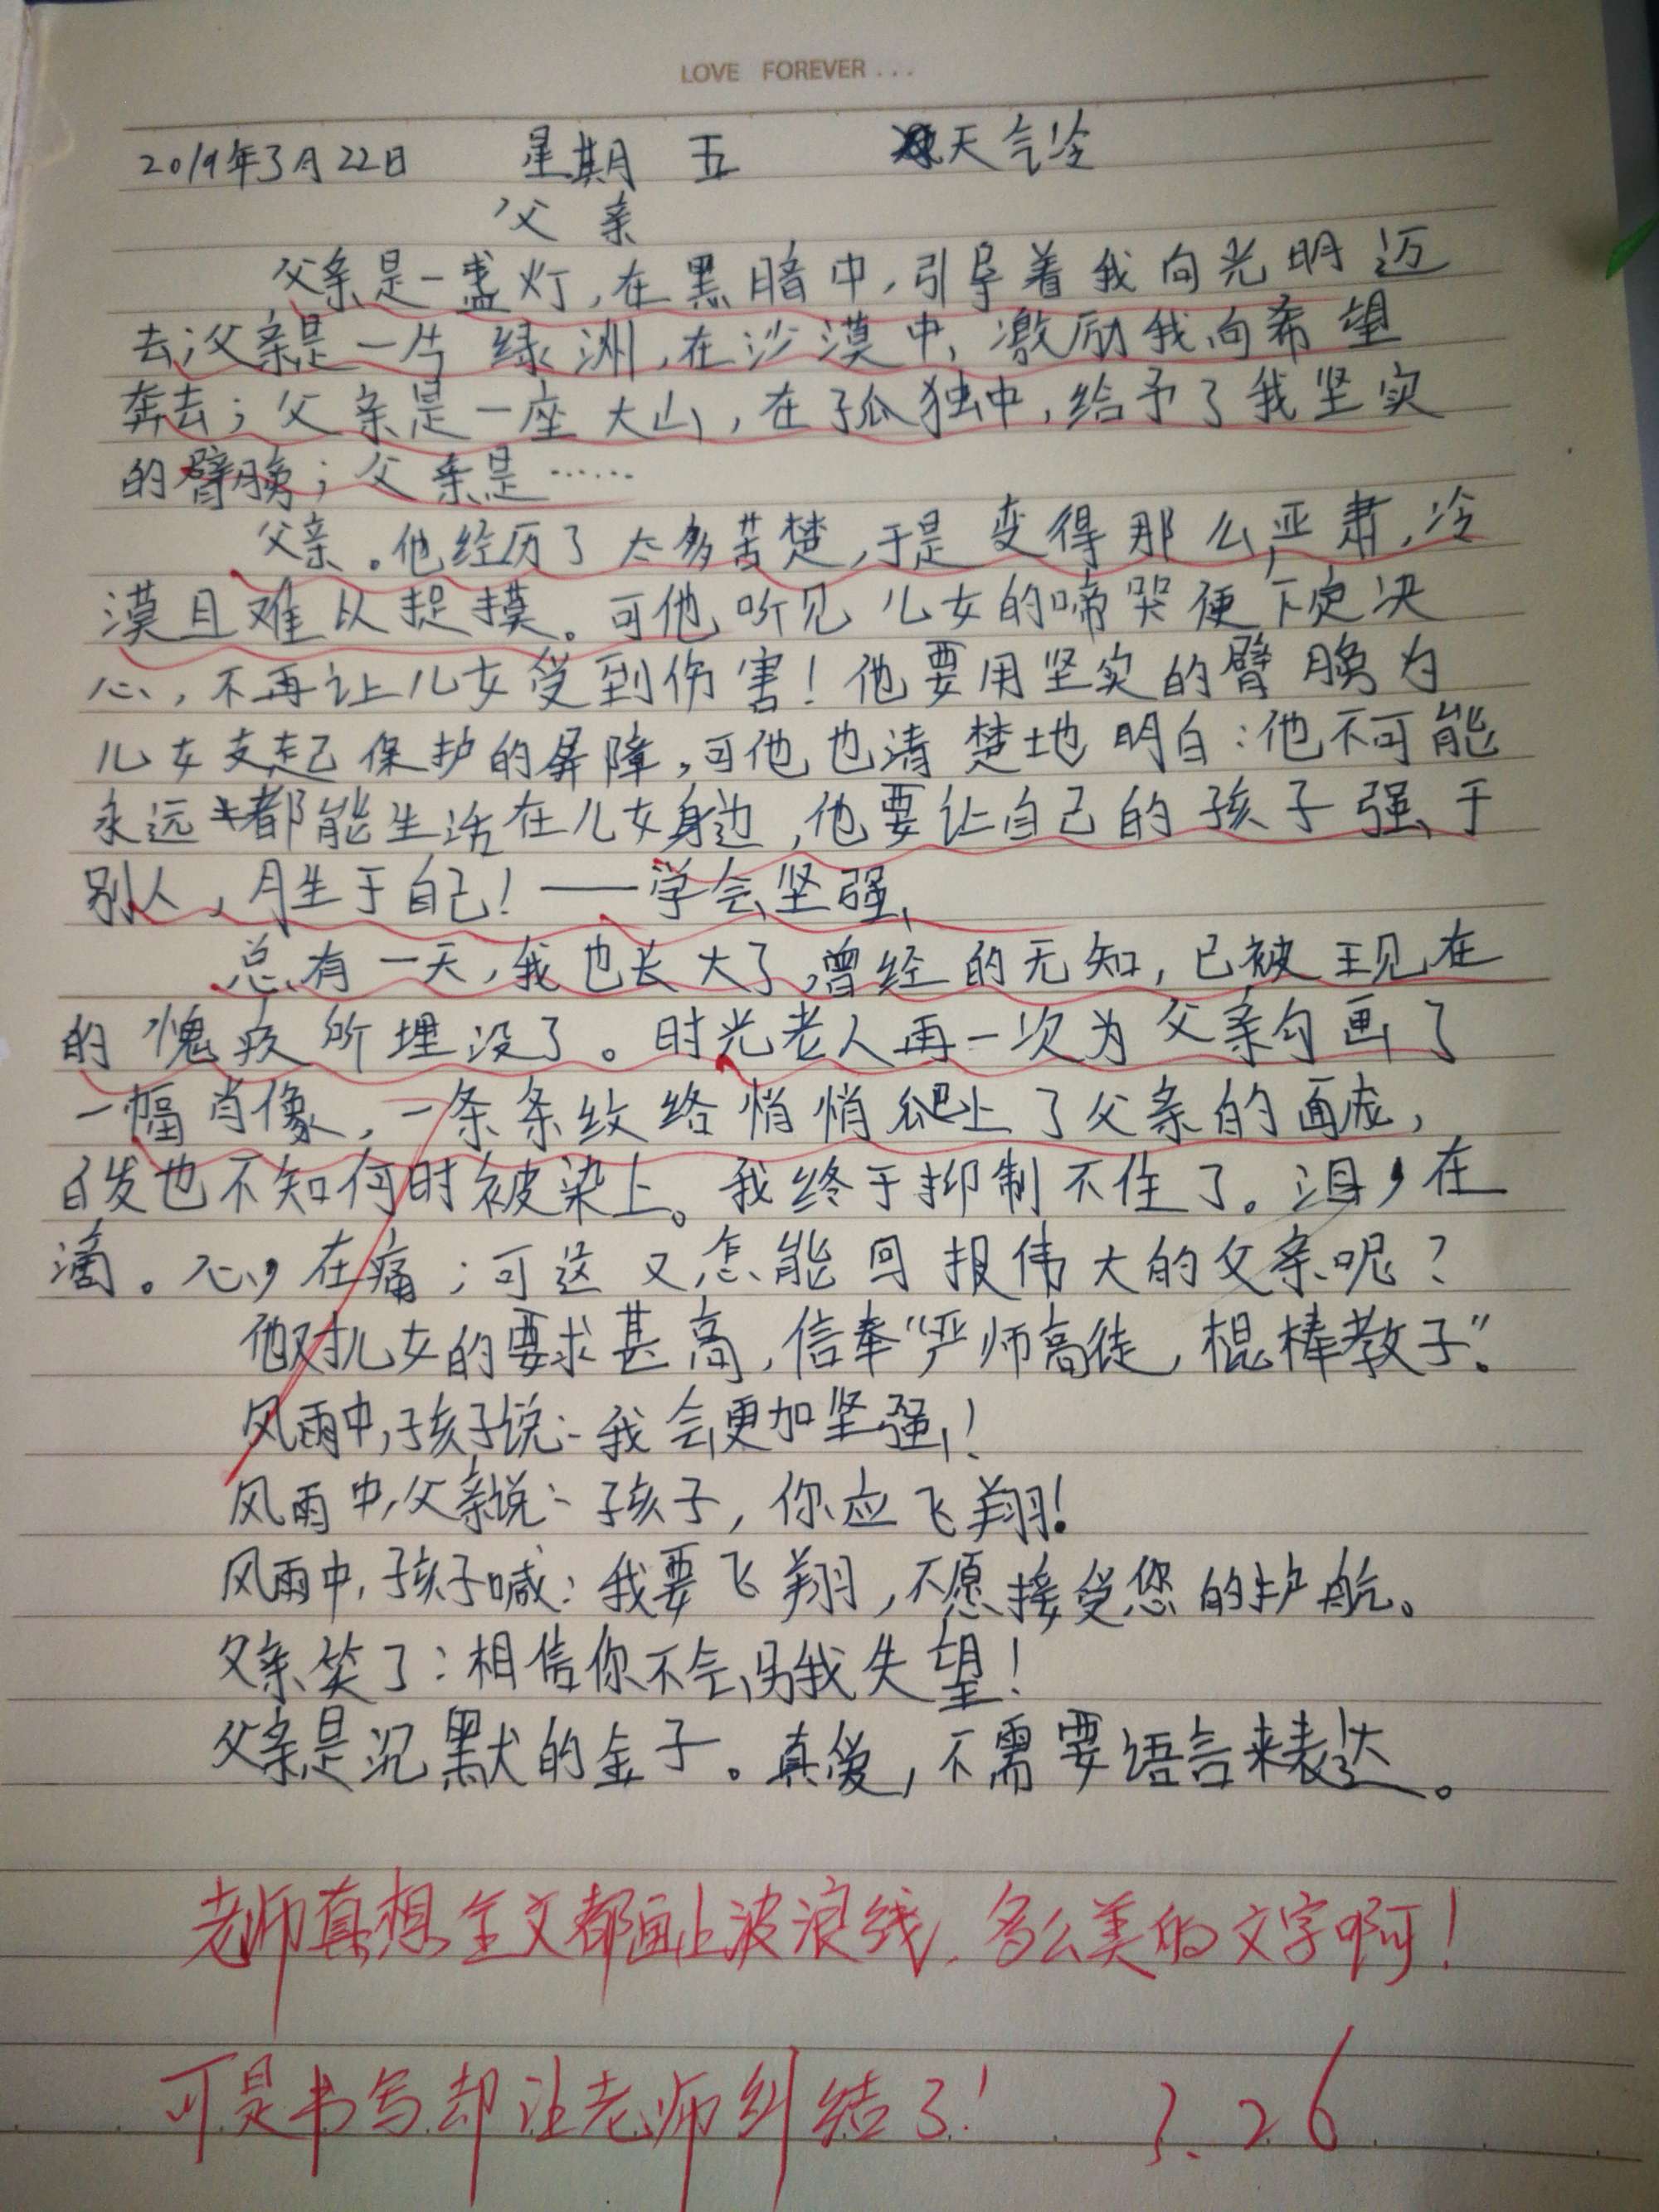 LOVE FOREVER...
2019年3月22日 星期五 天气冷
父亲
父亲是一盏灯,在黑暗中,引导着我向光明迈
去;父亲是一片绿洲,在沙漠中,激励我向希望
奔去;父亲是一座大山,在孤独中,给予了我坚实
的臂膀;父亲是……
父亲。他经历了太多苦楚,于是变得那么严肃,冷
漠且难以捉摸。可他听见儿女的啼哭便下定决
心,不再让儿女受到伤害!他要用坚实的臂膀为
儿女支起保护的屏障,可他也清楚地明白:他不可能
永远都能生活在儿女身边,他要让自己的孩子强于
别人,胜于自己!——学会坚强
总有一天,我也长大了,曾经的无知,已被现在
的愧疚所埋没了。时光老人再一次为父亲勾画了
一幅肖像,一条条纹络悄悄爬上了父亲的面庞,
白发也不知何时被染上。我终于抑制不住了。泪,在
滴。心,在痛;可这又怎能回报伟大的父亲呢?
他对儿女的要求甚高,信奉“严师高徒,棍棒教子”。
风雨中,孩子说:我会更加坚强!
风雨中,父亲说:孩子,你应飞翔!
风雨中,孩子喊:我要飞翔,不愿接受您的护航。
父亲笑了:相信你不会另我失望!
父亲是沉默的金子。真爱,不需要语言来表达。
老师真想全文都画上波浪线,多么美的文字啊!
可是书写却让老师纠结了! 3.26